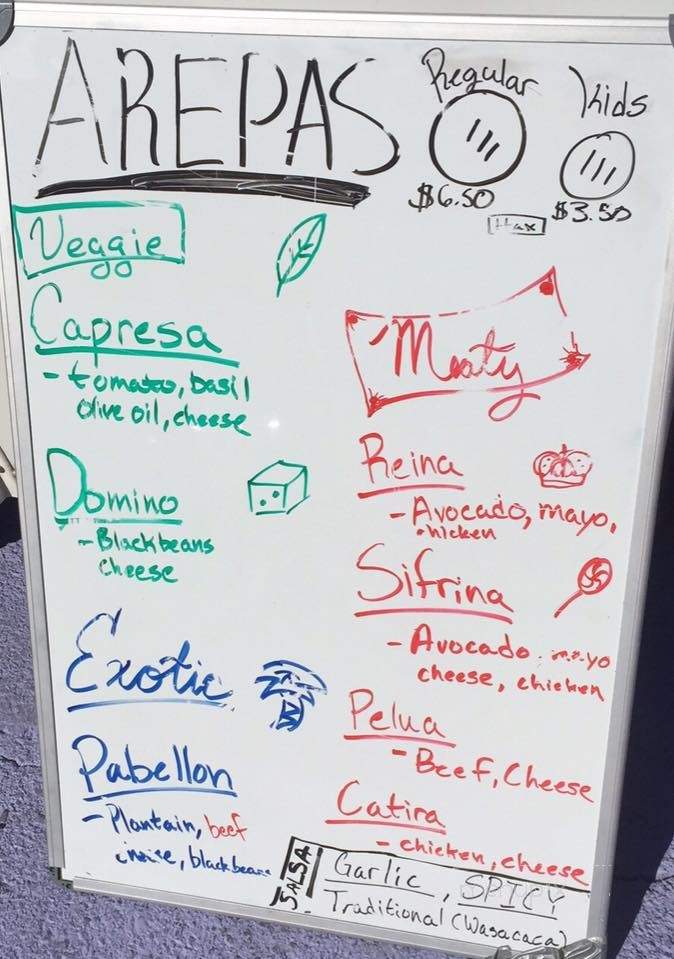 AREPAS
Regular
Kids
$6.50
$3.50
+tax
Veggie
Capresa
- tomatoes, basil
Olive oil, cheese
Domino
- Black beans
cheese
Exotic
Pabellon
- Plantain, beef
, black beans
Meaty
Reina
- Avocado, mayo,
chicken
Sifrina
- Avocado, mayo
cheese, chicken
Pelua
- Beef, Cheese
Catira
- chicken, cheese
SALSA
Garlic, SPICY
Traditional (Wasacaca)